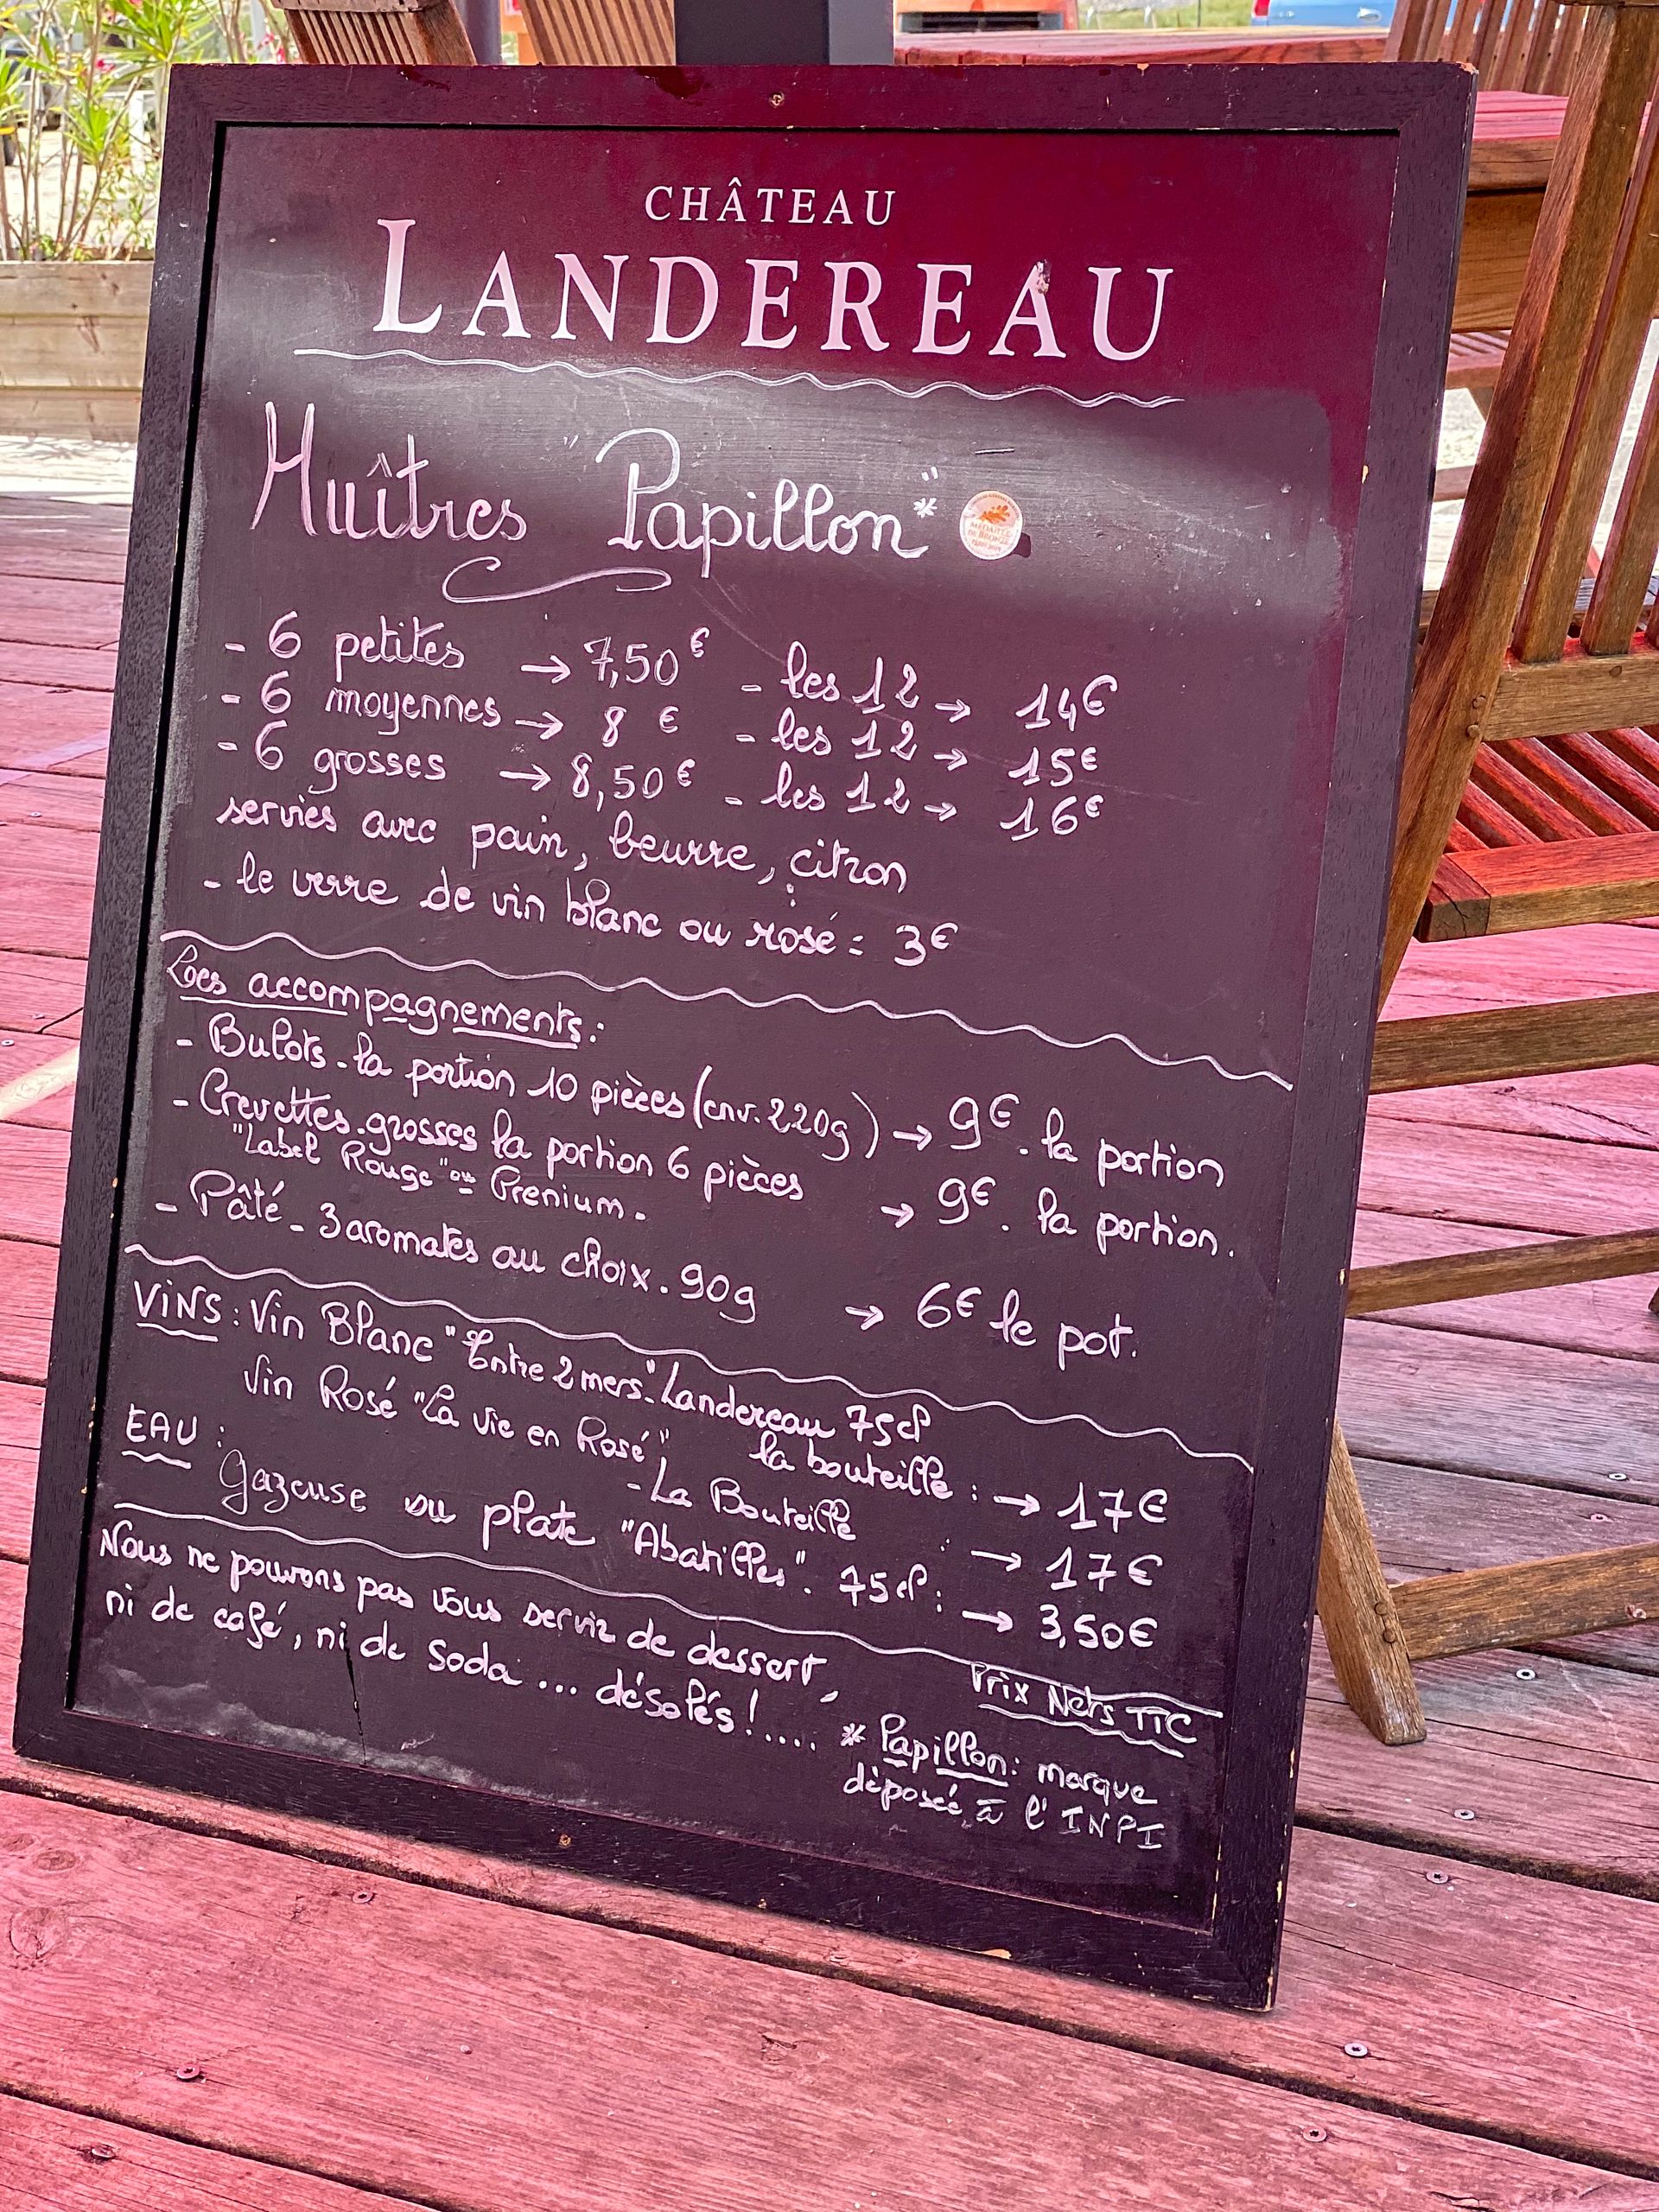 CHÂTEAU
LANDEREAU
Huîtres "Papillon"*
MÉDAILLE
DE BRONZE
- 6 petites → 7,50€ - les 12 → 14€
- 6 moyennes → 8 € - les 12 → 15€
- 6 grosses → 8,50€ - les 12 → 16€
servies avec pain, beurre, citron
- le verre de vin blanc ou rosé = 3€
Les accompagnements :
- Bulots - la portion 10 pièces (env. 220g) → 9€ . la portion
- Crevettes - grosses la portion 6 pièces → 9€ . la portion.
"Label Rouge" ou Prenium.
- Pâté - 3 aromates au choix. 90g → 6€ le pot.
VINS : Vin Blanc "Entre 2 mers" - Landereau 75cl
la bouteille : → 17€
Vin Rosé "La vie en Rosé"
- La Bouteille : → 17€
EAU :
Gazeuse ou plate "Abatilles". 75cl : → 3,50€
Nous ne pouvons pas vous servir de dessert,
ni de café, ni de soda ... désolés !....
Prix Nets TTC
* Papillon : marque
déposée à l'INPI